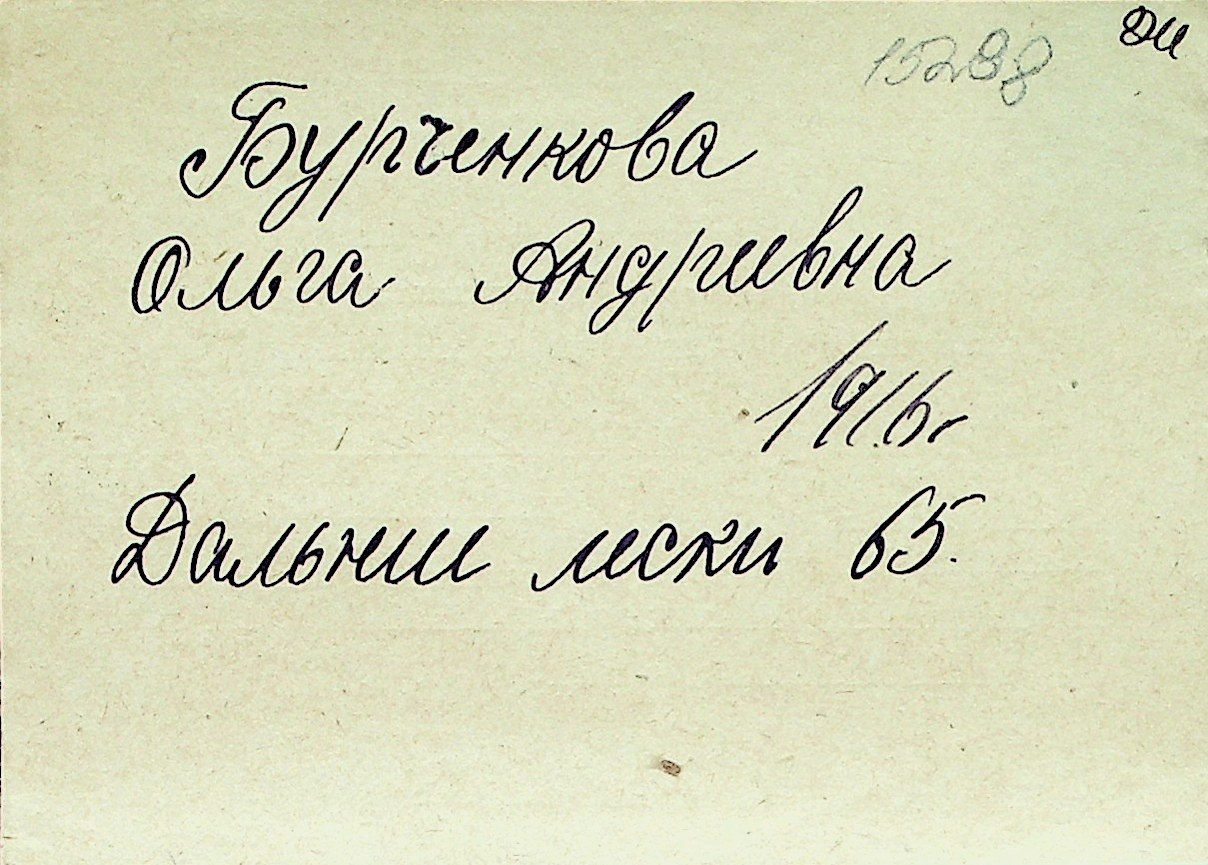 15288
Бурченкова
Ольга Андриевна
1916г
Дальнии пески 65.